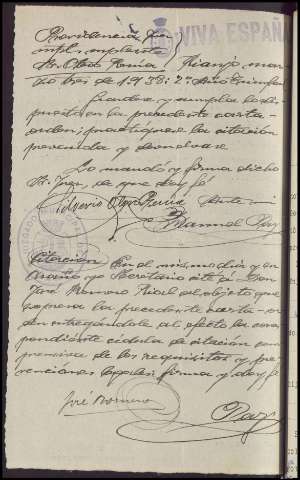 VIVA ESPAÑA
Providencia Juez
mpl. suplente
Sr. Otero Rouria Rianjo mar-
zo tres de 1938: 2º Año Triunfal
Guárdese y cumpla lo dis-
puesto en la precedente carta-
orden; practíquese la citación
prevenida y devuélvase
Lo mandó y firma dicho
Sr. Juez de que doy fé
Silverio Otero Ante mi
Manuel
Citación En el mismo día y en
yo Secretario cité á Don
José Romero al objeto que
expresa la precedente carta-or-
den entregándole al efecto la corres-
pondiente cédula de citación com-
prensiva de los requisitos y pre-
venciones legales: firma y doy fé
José Romero